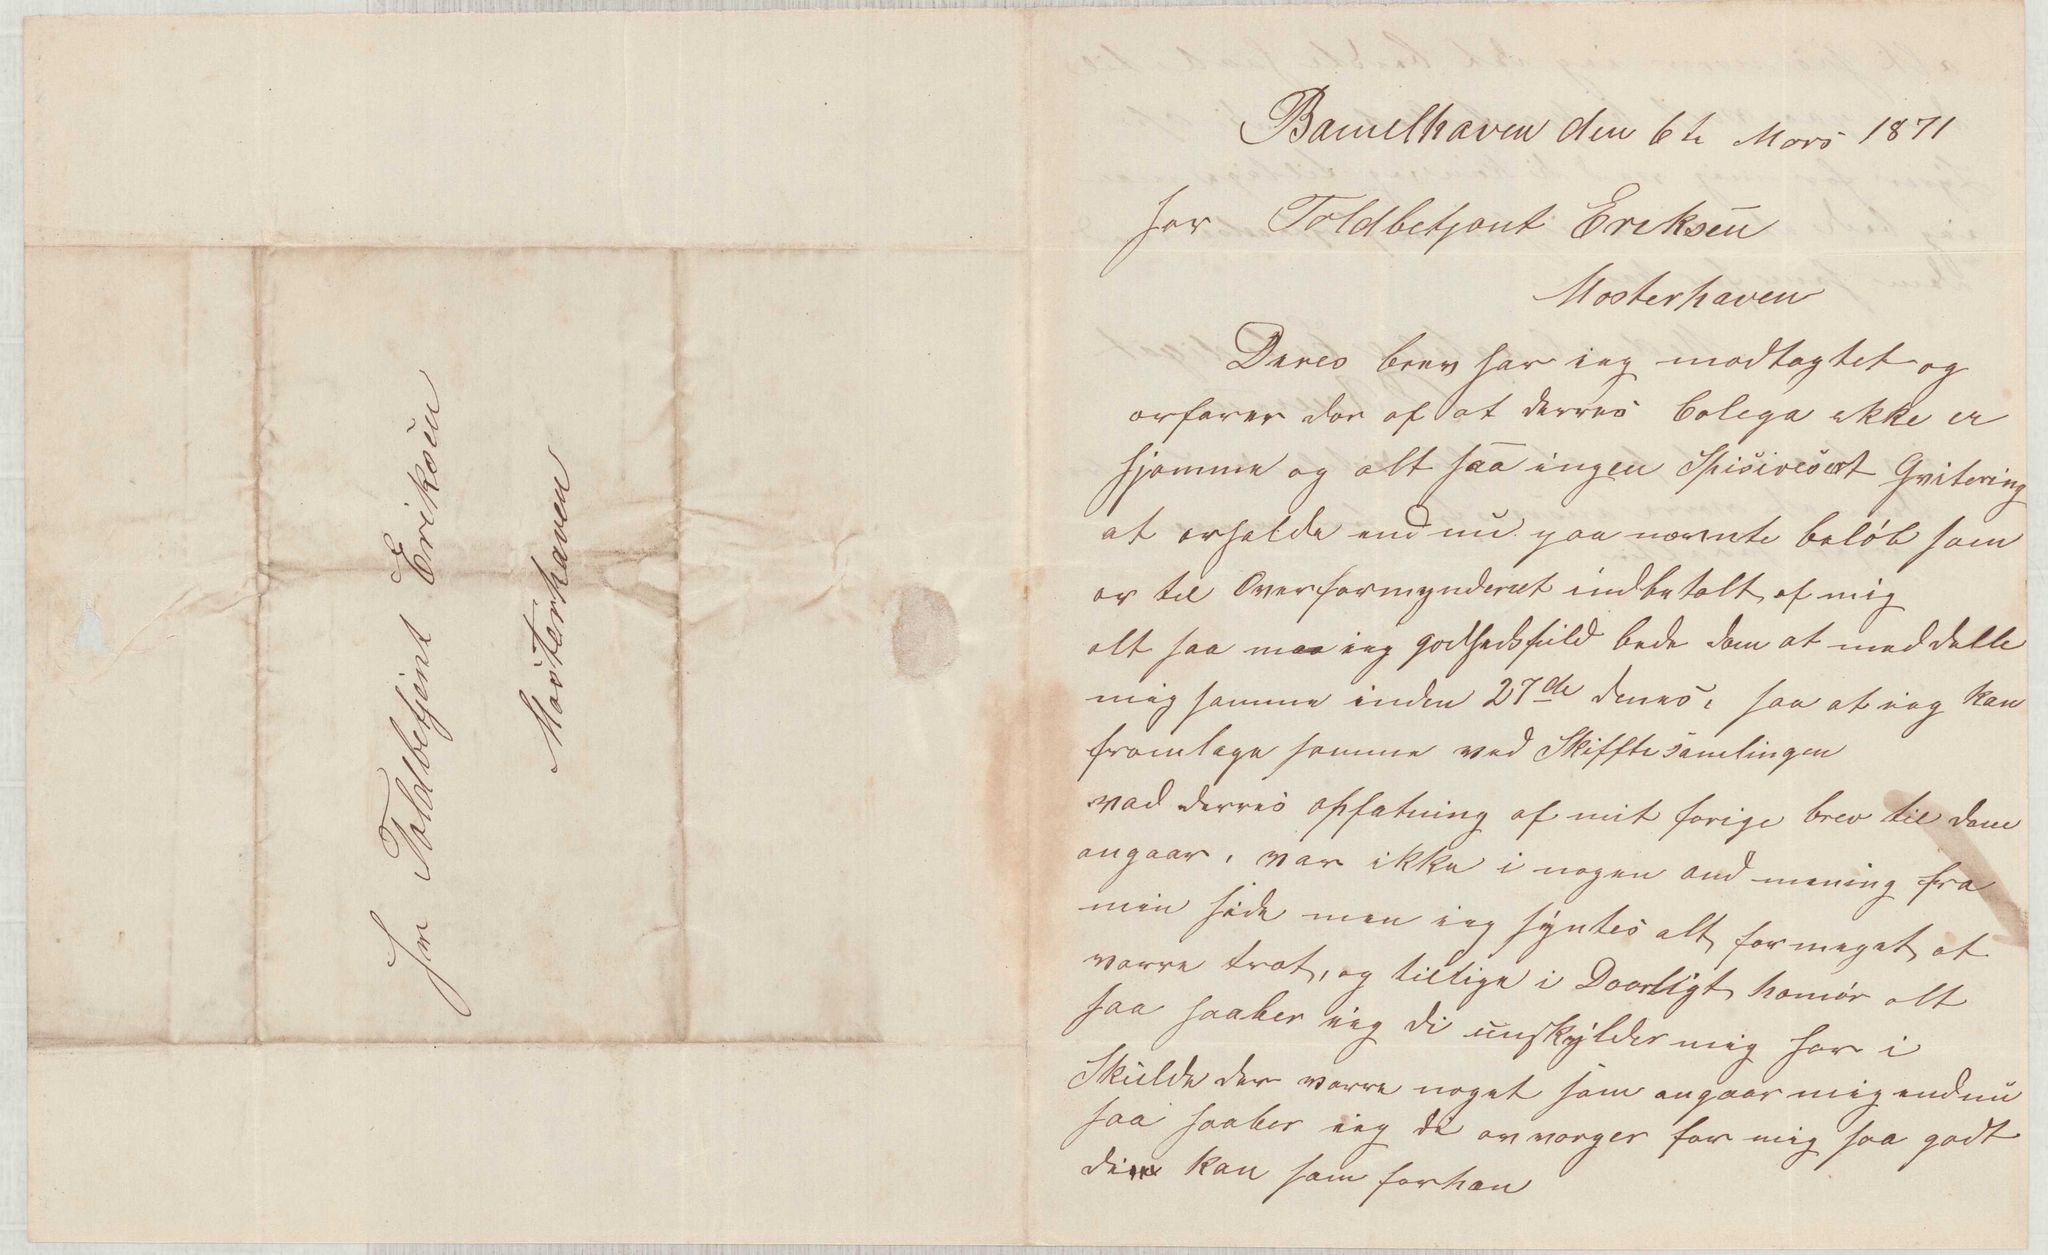 Hr Toldbetjent Eriksen
Mosterhaven
Bamelhaven den 6te Mars 1871
Hr Toldbetjent Eriksen
Mosterhaven
Deres brev har ieg modtagtet og
erfarer der af at derres Colega ekke er
hjemme og alt saa ingen Spisivesert Qvitering
at erholde end nu paa nevnte beløb som
er til Overformynderiet indbetalt af mig
alt saa maa ieg godhedsfuld bede dem at meddelle
mig samme inden 27de denes, saa at ieg kan
fremlege samme ved Skiftesamlingen
vad derres opfatning af mit forige brev til dem
angaar, var ikke i nogen ond mening fra
min side men ieg syntes alt formeget at
verre tret, og tillige i Doarligt homør alt
saa haaber ieg di unskylder mig her i
Skulde der verre noget som angaar mig endnu
saa haaber ieg de avverger for mig saa godt
di kan som forhen